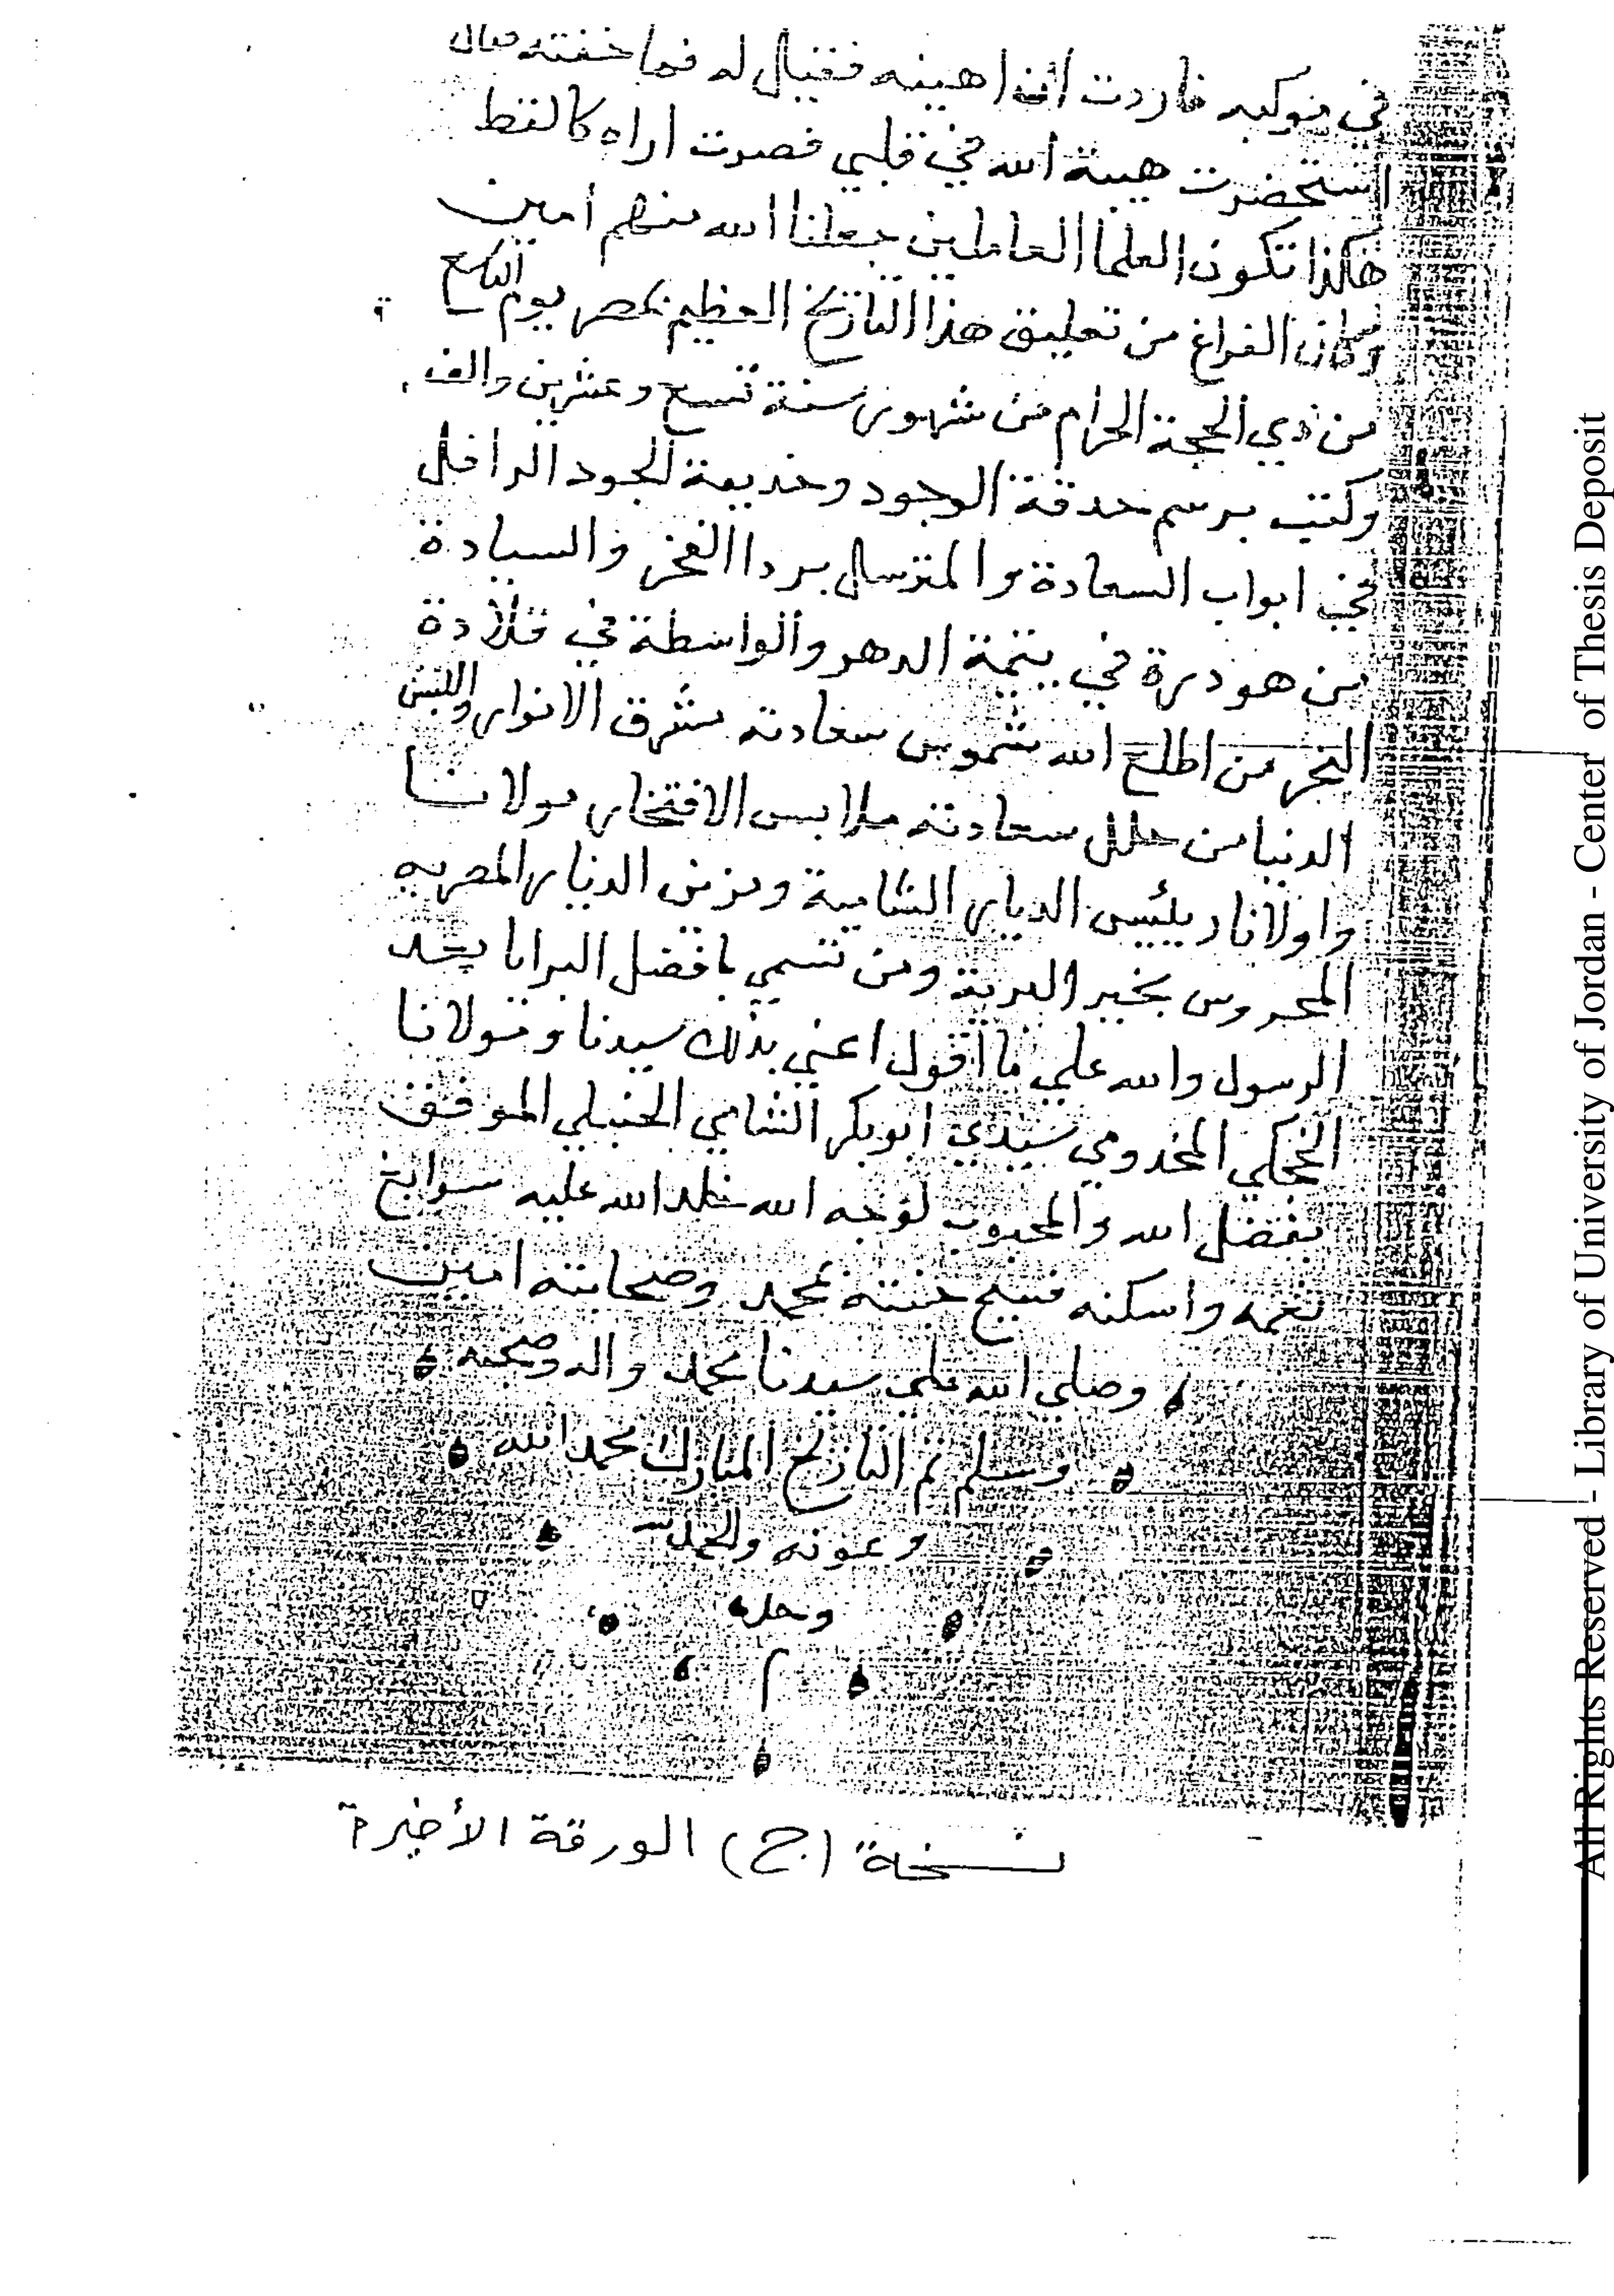 في موكبه فاردت ان اهينه فقيل له فما خفته فقال
استحضرت هيبة الله في قلبي فصرت اراه كالقط
هكذا تكون العلما العاملين جعلنا الله منهم امين
وكان الفراغ من تعليق هذا التاريخ العظيم بمصر يوم التاسع
من ذي الحجة الحرام من شهور سنة تسع وعشرين والف
وكتب برسم حدقة الوجود وخديعة الجود الرافل
في ابواب السعادة والمتزسل بردا الفخر والسيادة
من هو درة في يتيمة الدهر والواسطة في قلادة
النحر من اطلع الله شموس سعادته مشرق الانوار والبس
الدنيا من حلل سعادته ملابس الافتخار مولانا
واولانا رييس الديار الشامية ومزين الديار المصريه
المحروس بخير البرية ومن تسمي بافضل البرايا بعد
الرسول والله علي ما اقول اعني بذلك سيدنا ومولانا
المخدومي سيدي ابوبكر الشامي الحنبلي الموفق
بفضل الله والمحبوب لوجه الله خلد الله عليه سوابغ
نعمه واسكنه فسيح جنته بمحمد وصحابته امين
وصلي الله علي سيدنا محمد واله وصحبه
وسلم تم التاريخ المبارك بحمد الله
وعونه والحمد لله
وحده
م
نسخة (ج) الورقة الأخيرة
All Rights Reserved - Library of University of Jordan - Center of Thesis Deposit